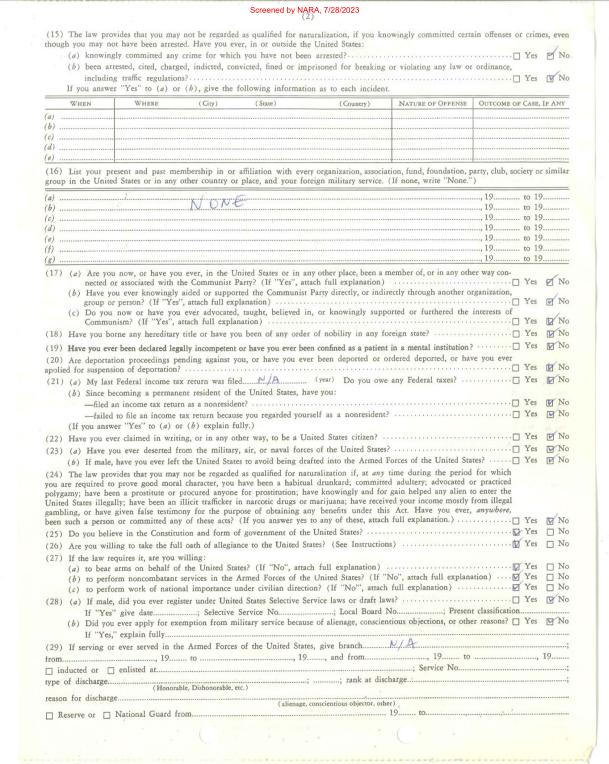 Screened by NARA, 7/28/2023
(2)
(15) The law provides that you may not be regarded as qualified for naturalization, if you knowingly committed certain offenses or crimes, even
though you may not have been arrested. Have you ever, in or outside the United States:
(a) knowingly committed any crime for which you have not been arrested? ☐ Yes ☑ No
(b) been arrested, cited, charged, indicted, convicted, fined or imprisoned for breaking or violating any law or ordinance,
including traffic regulations? ☐ Yes ☑ No
If you answer "Yes" to (a) or (b), give the following information as to each incident.
WHEN WHERE (City) (State) (Country) NATURE OF OFFENSE OUTCOME OF CASE, IF ANY
(a)
(b)
(c)
(d)
(e)
(16) List your present and past membership in or affiliation with every organization, association, fund, foundation, party, club, society or similar
group in the United States or in any other country or place, and your foreign military service. (If none, write "None.")
(a) , 19 to 19
(b) NONE , 19 to 19
(c) , 19 to 19
(d) , 19 to 19
(e) , 19 to 19
(f) , 19 to 19
(g) , 19 to 19
(17) (a) Are you now, or have you ever, in the United States or in any other place, been a member of, or in any other way con-
nected or associated with the Communist Party? (If "Yes", attach full explanation) ☐ Yes ☑ No
(b) Have you ever knowingly aided or supported the Communist Party directly, or indirectly through another organization,
group or person? (If "Yes", attach full explanation) ☐ Yes ☑ No
(c) Do you now or have you ever advocated, taught, believed in, or knowingly supported or furthered the interests of
Communism? (If "Yes", attach full explanation) ☐ Yes ☑ No
(18) Have you borne any hereditary title or have you been of any order of nobility in any foreign state? ☐ Yes ☑ No
(19) Have you ever been declared legally incompetent or have you ever been confined as a patient in a mental institution? ☐ Yes ☑ No
(20) Are deportation proceedings pending against you, or have you ever been deported or ordered deported, or have you ever
applied for suspension of deportation? ☐ Yes ☑ No
(21) (a) My last Federal income tax return was filed N/A (year) Do you owe any Federal taxes? ☐ Yes ☑ No
(b) Since becoming a permanent resident of the United States, have you:
—filed an income tax return as a nonresident? ☐ Yes ☑ No
—failed to file an income tax return because you regarded yourself as a nonresident? ☐ Yes ☑ No
(If you answer "Yes" to (a) or (b) explain fully.)
(22) Have you ever claimed in writing, or in any other way, to be a United States citizen? ☐ Yes ☑ No
(23) (a) Have you ever deserted from the military, air, or naval forces of the United States? ☐ Yes ☑ No
(b) If male, have you ever left the United States to avoid being drafted into the Armed Forces of the United States? ☐ Yes ☑ No
(24) The law provides that you may not be regarded as qualified for naturalization if, at any time during the period for which
you are required to prove good moral character, you have been a habitual drunkard; committed adultery; advocated or practiced
polygamy; have been a prostitute or procured anyone for prostitution; have knowingly and for gain helped any alien to enter the
United States illegally; have been an illicit trafficker in narcotic drugs or marijuana; have received your income mostly from illegal
gambling, or have given false testimony for the purpose of obtaining any benefits under this Act. Have you ever, anywhere,
been such a person or committed any of these acts? (If you answer yes to any of these, attach full explanation.) ☐ Yes ☑ No
(25) Do you believe in the Constitution and form of government of the United States? ☑ Yes ☐ No
(26) Are you willing to take the full oath of allegiance to the United States? (See Instructions) ☑ Yes ☐ No
(27) If the law requires it, are you willing:
(a) to bear arms on behalf of the United States? (If "No", attach full explanation) ☑ Yes ☐ No
(b) to perform noncombatant services in the Armed Forces of the United States? (If "No", attach full explanation) ☑ Yes ☐ No
(c) to perform work of national importance under civilian direction? (If "No", attach full explanation) ☑ Yes ☐ No
(28) (a) If male, did you ever register under United States Selective Service laws or draft laws? ☐ Yes ☑ No
If "Yes" give date ; Selective Service No. ; Local Board No. ; Present classification
(b) Did you ever apply for exemption from military service because of alienage, conscientious objections, or other reasons? ☐ Yes ☑ No
If "Yes," explain fully
(29) If serving or ever served in the Armed Forces of the United States, give branch N/A ;
from , 19 to , 19 , and from , 19 to , 19
☐ inducted or ☐ enlisted at ; Service No. ;
type of discharge ; ; rank at discharge ;
(Honorable, Dishonorable, etc.)
reason for discharge
(alienage, conscientious objector, other)
☐ Reserve or ☐ National Guard from 19 to